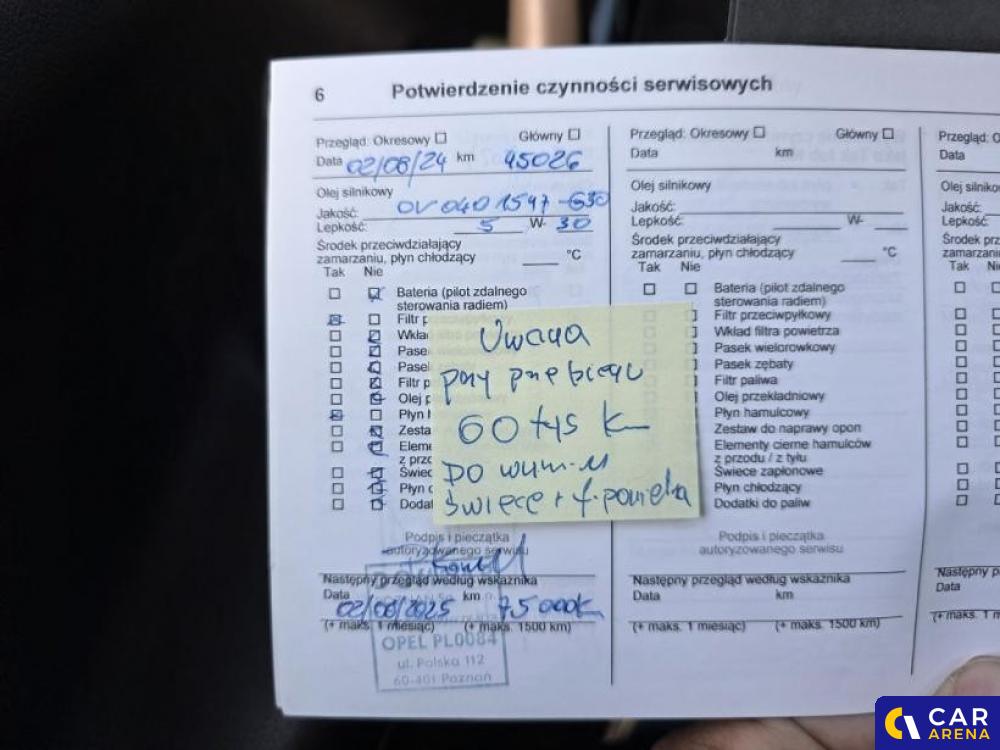 6 Potwierdzenie czynności serwisowych
Przegląd: Okresowy Główny
Data 02/08/24 km 45026
Olej silnikowy
Jakość: OV0401547-G30
Lepkość: 5 W- 30
Środek przeciwdziałający
zamarzaniu, płyn chłodzący °C
Tak Nie
Bateria (pilot zdalnego
sterowania radiem)
Filtr
Wkład
Pasek
Pasek
Filtr p
Olej
Płyn
Zesta
Eleme
z prz
Świec
Płyn c
Dodat
Podpis i pieczątka
autoryzowanego serwisu
Następny przegląd według wskaźnika
Data km
02/08/2025 75000k
(+ maks. 1 miesiąc) (+ maks. 1500 km)
OPEL PL0084
ul. Polska 112
60-401 Poznań
Uwaga
przy przebiegu
60 tys km
Do wym-y
świece + f. powietrza
Przegląd: Okresowy Główny
Data km
Olej silnikowy
Jakość:
Lepkość: W-
Środek przeciwdziałający
zamarzaniu, płyn chłodzący °C
Tak Nie
Bateria (pilot zdalnego
sterowania radiem)
Filtr przeciwpyłkowy
Wkład filtra powietrza
Pasek wielorowkowy
Pasek zębaty
Filtr paliwa
Olej przekładniowy
Płyn hamulcowy
Zestaw do naprawy opon
Elementy cierne hamulców
z przodu / z tyłu
Świece zapłonowe
Płyn chłodzący
Dodatki do paliw
Podpis i pieczątka
autoryzowanego serwisu
Następny przegląd według wskaźnika
Data km
(+ maks. 1 miesiąc) (+ maks. 1500 km)
Przegląd: O
Data
Olej silniko
Jakość:
Lepkość:
Środek prze
zamarzaniu,
Tak Nie
Następny p
Data
(+ maks. 1 m
CAR
ARENA